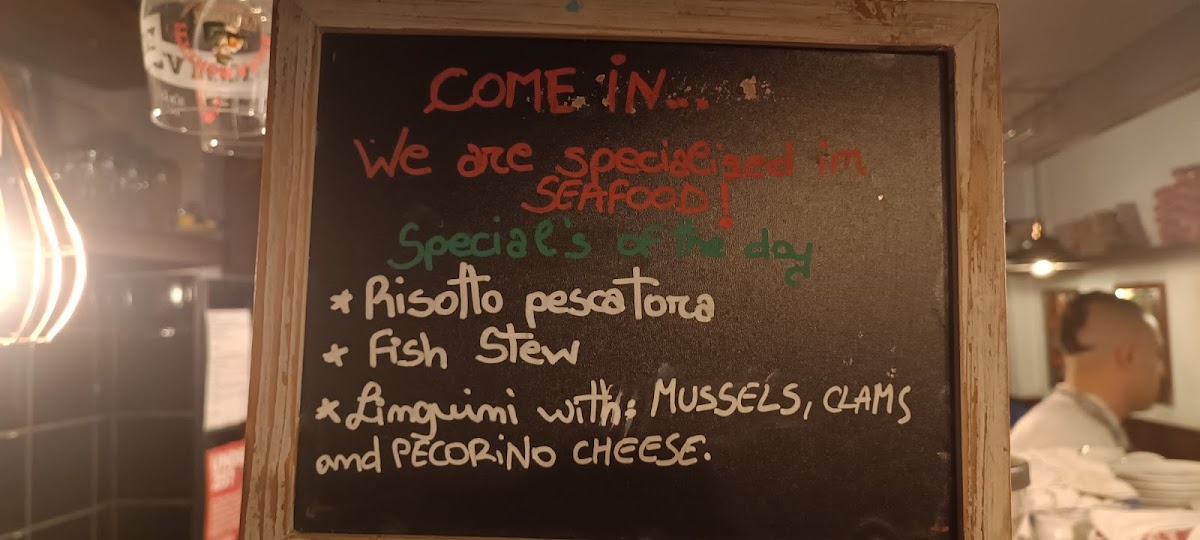 COME iN...
We are specialized in
SEAFOOD!
Special's of the day
* Risotto pescatora
* Fish Stew
* Linguini with: MUSSELS, CLAMS
and PECORiNO CHEESE.